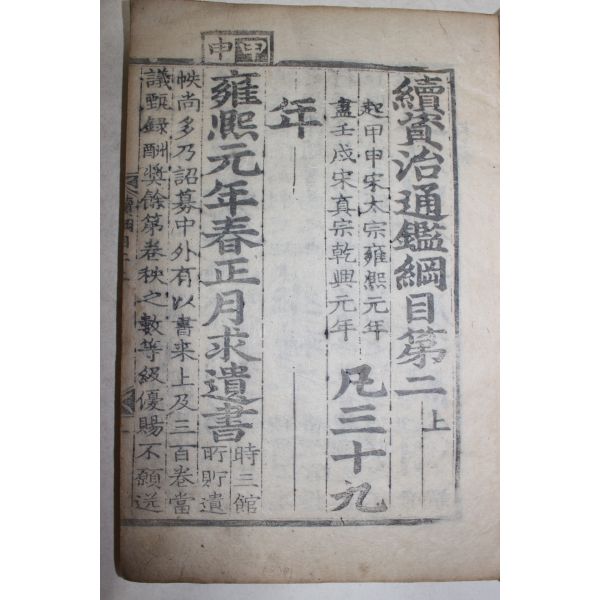 續資治通鑑綱目第二上
起甲申宋太宗雍熙元年
盡壬戌宋真宗乾興元年
凡三十九
年
甲申
雍熙元年春正月求遺書
時三館
所貯遺
帙尚多乃詔募中外有以書来上及三百卷當
議甄録酬奬餘第卷秩之數等級優賜不願送